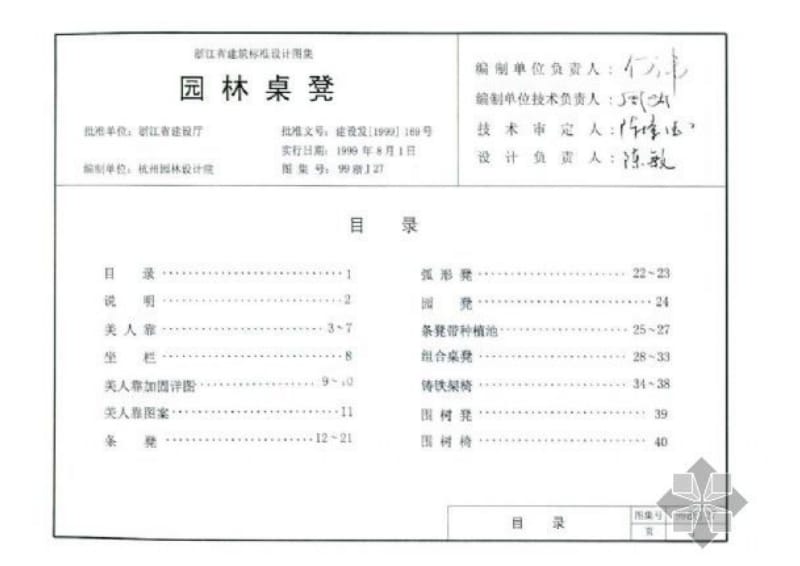 浙江省建筑标准设计图集
园林桌凳
批准单位：浙江省建设厅
批准文号：建设发[1999]169号
实行日期：1999年8月1日
编制单位：杭州园林设计院
图集号：99浙J27
编制单位负责人：
编制单位技术负责人：
技术审定人：
设计负责人：陈敏
目 录
目录 1
说明 2
美人靠 3~7
坐栏 8
美人靠加固详图 9~10
美人靠图案 11
条凳 12~21
弧形凳 22~23
园凳 24
条凳带种植池 25~27
组合桌凳 28~33
铸铁架椅 34~38
围树凳 39
围树椅 40
目 录
图集号
页